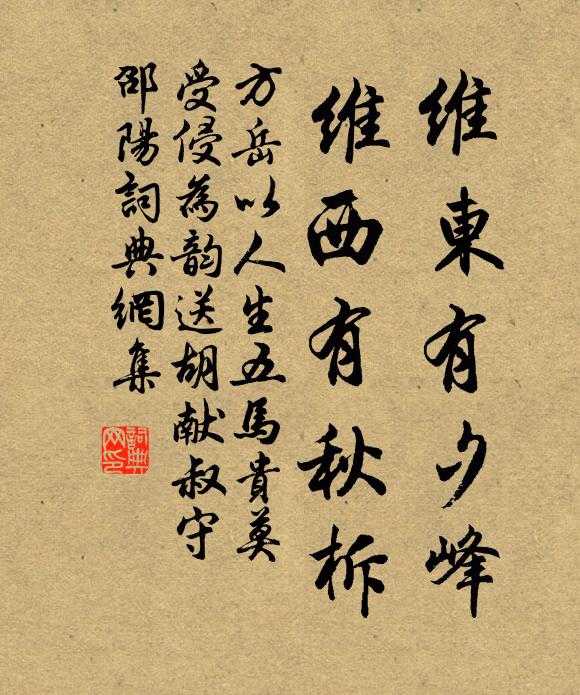 維東有夕峰
維西有秋柝
方岳以人生五馬貴莫
受侵為韵送胡献叔守
邵陽詞典網集
詞典网印